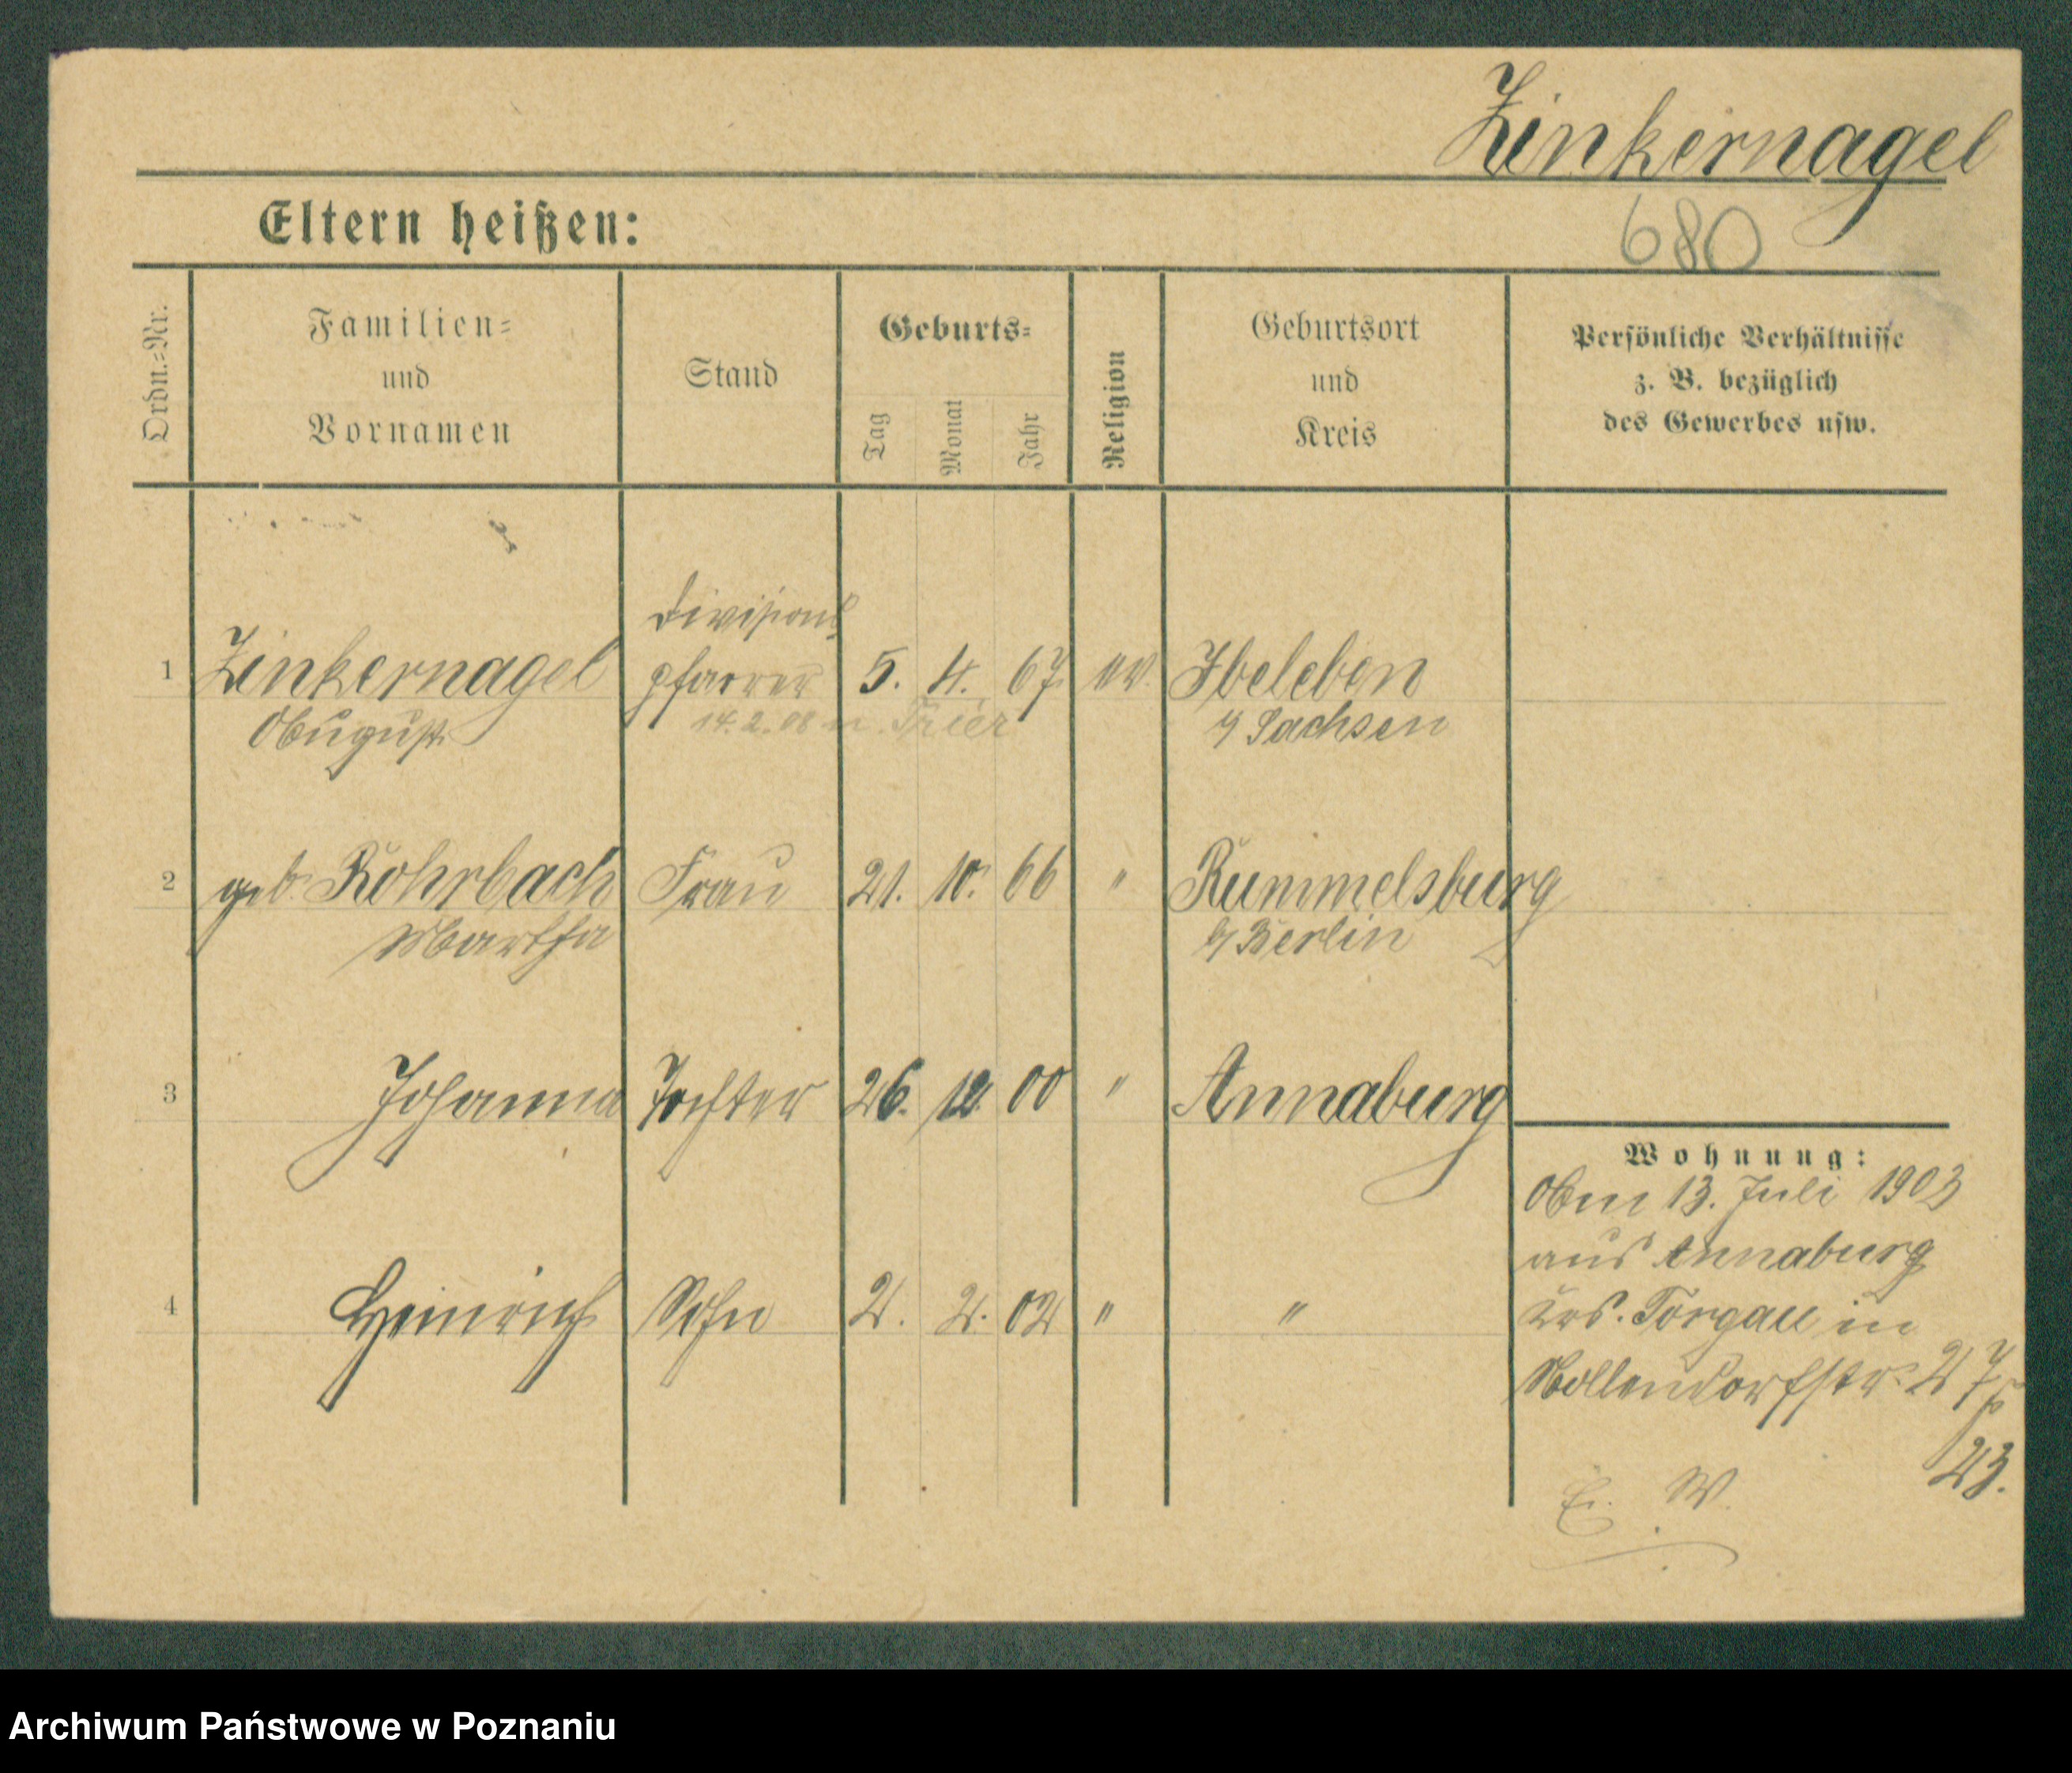 Zinkernagel
Eltern heißen:
680
Ordn.=Nr.
Familien=
und
Vornamen
Stand
Geburts=
Tag
Monat
Jahr
Religion
Geburtsort
und
Kreis
Persönliche Verhältnisse
z. B. bezüglich
des Gewerbes usw.
Divisions
1 Zinkernagel pfarrer 5. 4. 67 ev. Ebeleben
August 14.2.08 n. Trier i/ Sachsen
2 geb. Rohrbach Frau 21. 10. 66 " Rummelsburg
Martha b/ Berlin
3 Johanna Tochter 26. 12. 00 " Annaburg
4 Heinrich Sohn 2. 2. 02 " "
Wohnung:
Am 13. Juli 1903
aus Annaburg
Krs. Torgau in
Nollendorfstr. 27
23.
E. W.
Archiwum Państwowe w Poznaniu